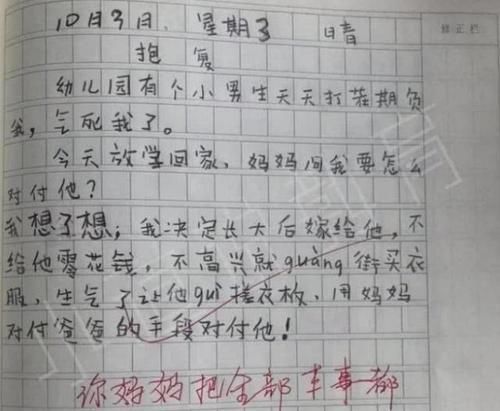 10月3日. 星期3 晴
修正栏
抱复
幼儿园有个小男生天天打期负
我,气死我了。
今天放学回家,妈妈问我要怎么
对付他?
我想了想,我决定长大后嫁给他,不
给他零花钱,不高兴就guàng街买衣
服,生气了让他guì搓衣板,用妈妈
对付爸爸的手段对付他!
你妈妈把全部本事都